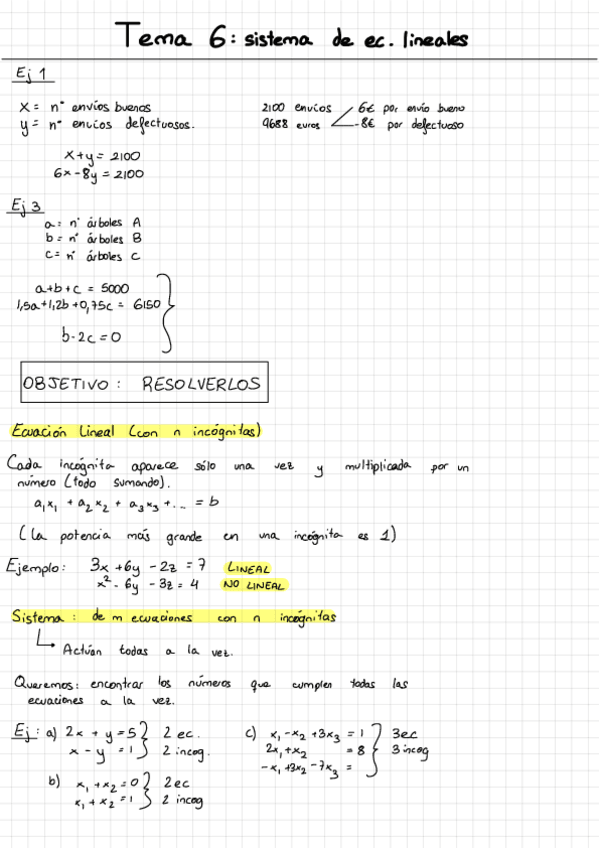 Tema 6: sistema de ec. lineales
Ej 1
x = nº envíos buenos
y = nº envíos defectuosos.
2100 envíos 6€ por envío bueno
9688 euros -8€ por defectuoso
x+y = 2100
6x-8y = 2100
Ej 3
a = nº árboles A
b = nº árboles B
c = nº árboles C
a+b+c = 5000
1,5a+1,2b+0,75c = 6150
b-2c = 0
OBJETIVO : RESOLVERLOS
Ecuación Lineal (con n incógnitas)
Cada incógnita aparece sólo una vez y multiplicada por un
número (todo sumando).
a₁x₁ + a₂x₂ + a₃x₃ + ... = b
(La potencia más grande en una incógnita es 1)
Ejemplo: 3x +6y -2z = 7 LINEAL
x² - 6y - 3z = 4 NO LINEAL
Sistema : de m ecuaciones con n incógnitas
Actúan todas a la vez.
Queremos: encontrar los números que cumplen todas las
ecuaciones a la vez.
Ej : a) 2x + y = 5 } 2 ec.
x - y = 1 } 2 incog.
b) x₁ + x₂ = 0 } 2 ec
x₁ + x₂ = 1 } 2 incog
c) x₁ - x₂ + 3x₃ = 1 } 3 ec
2x₁ + x₂ = 8 } 3 incog
-x₁ + 3x₂ - 7x₃ =